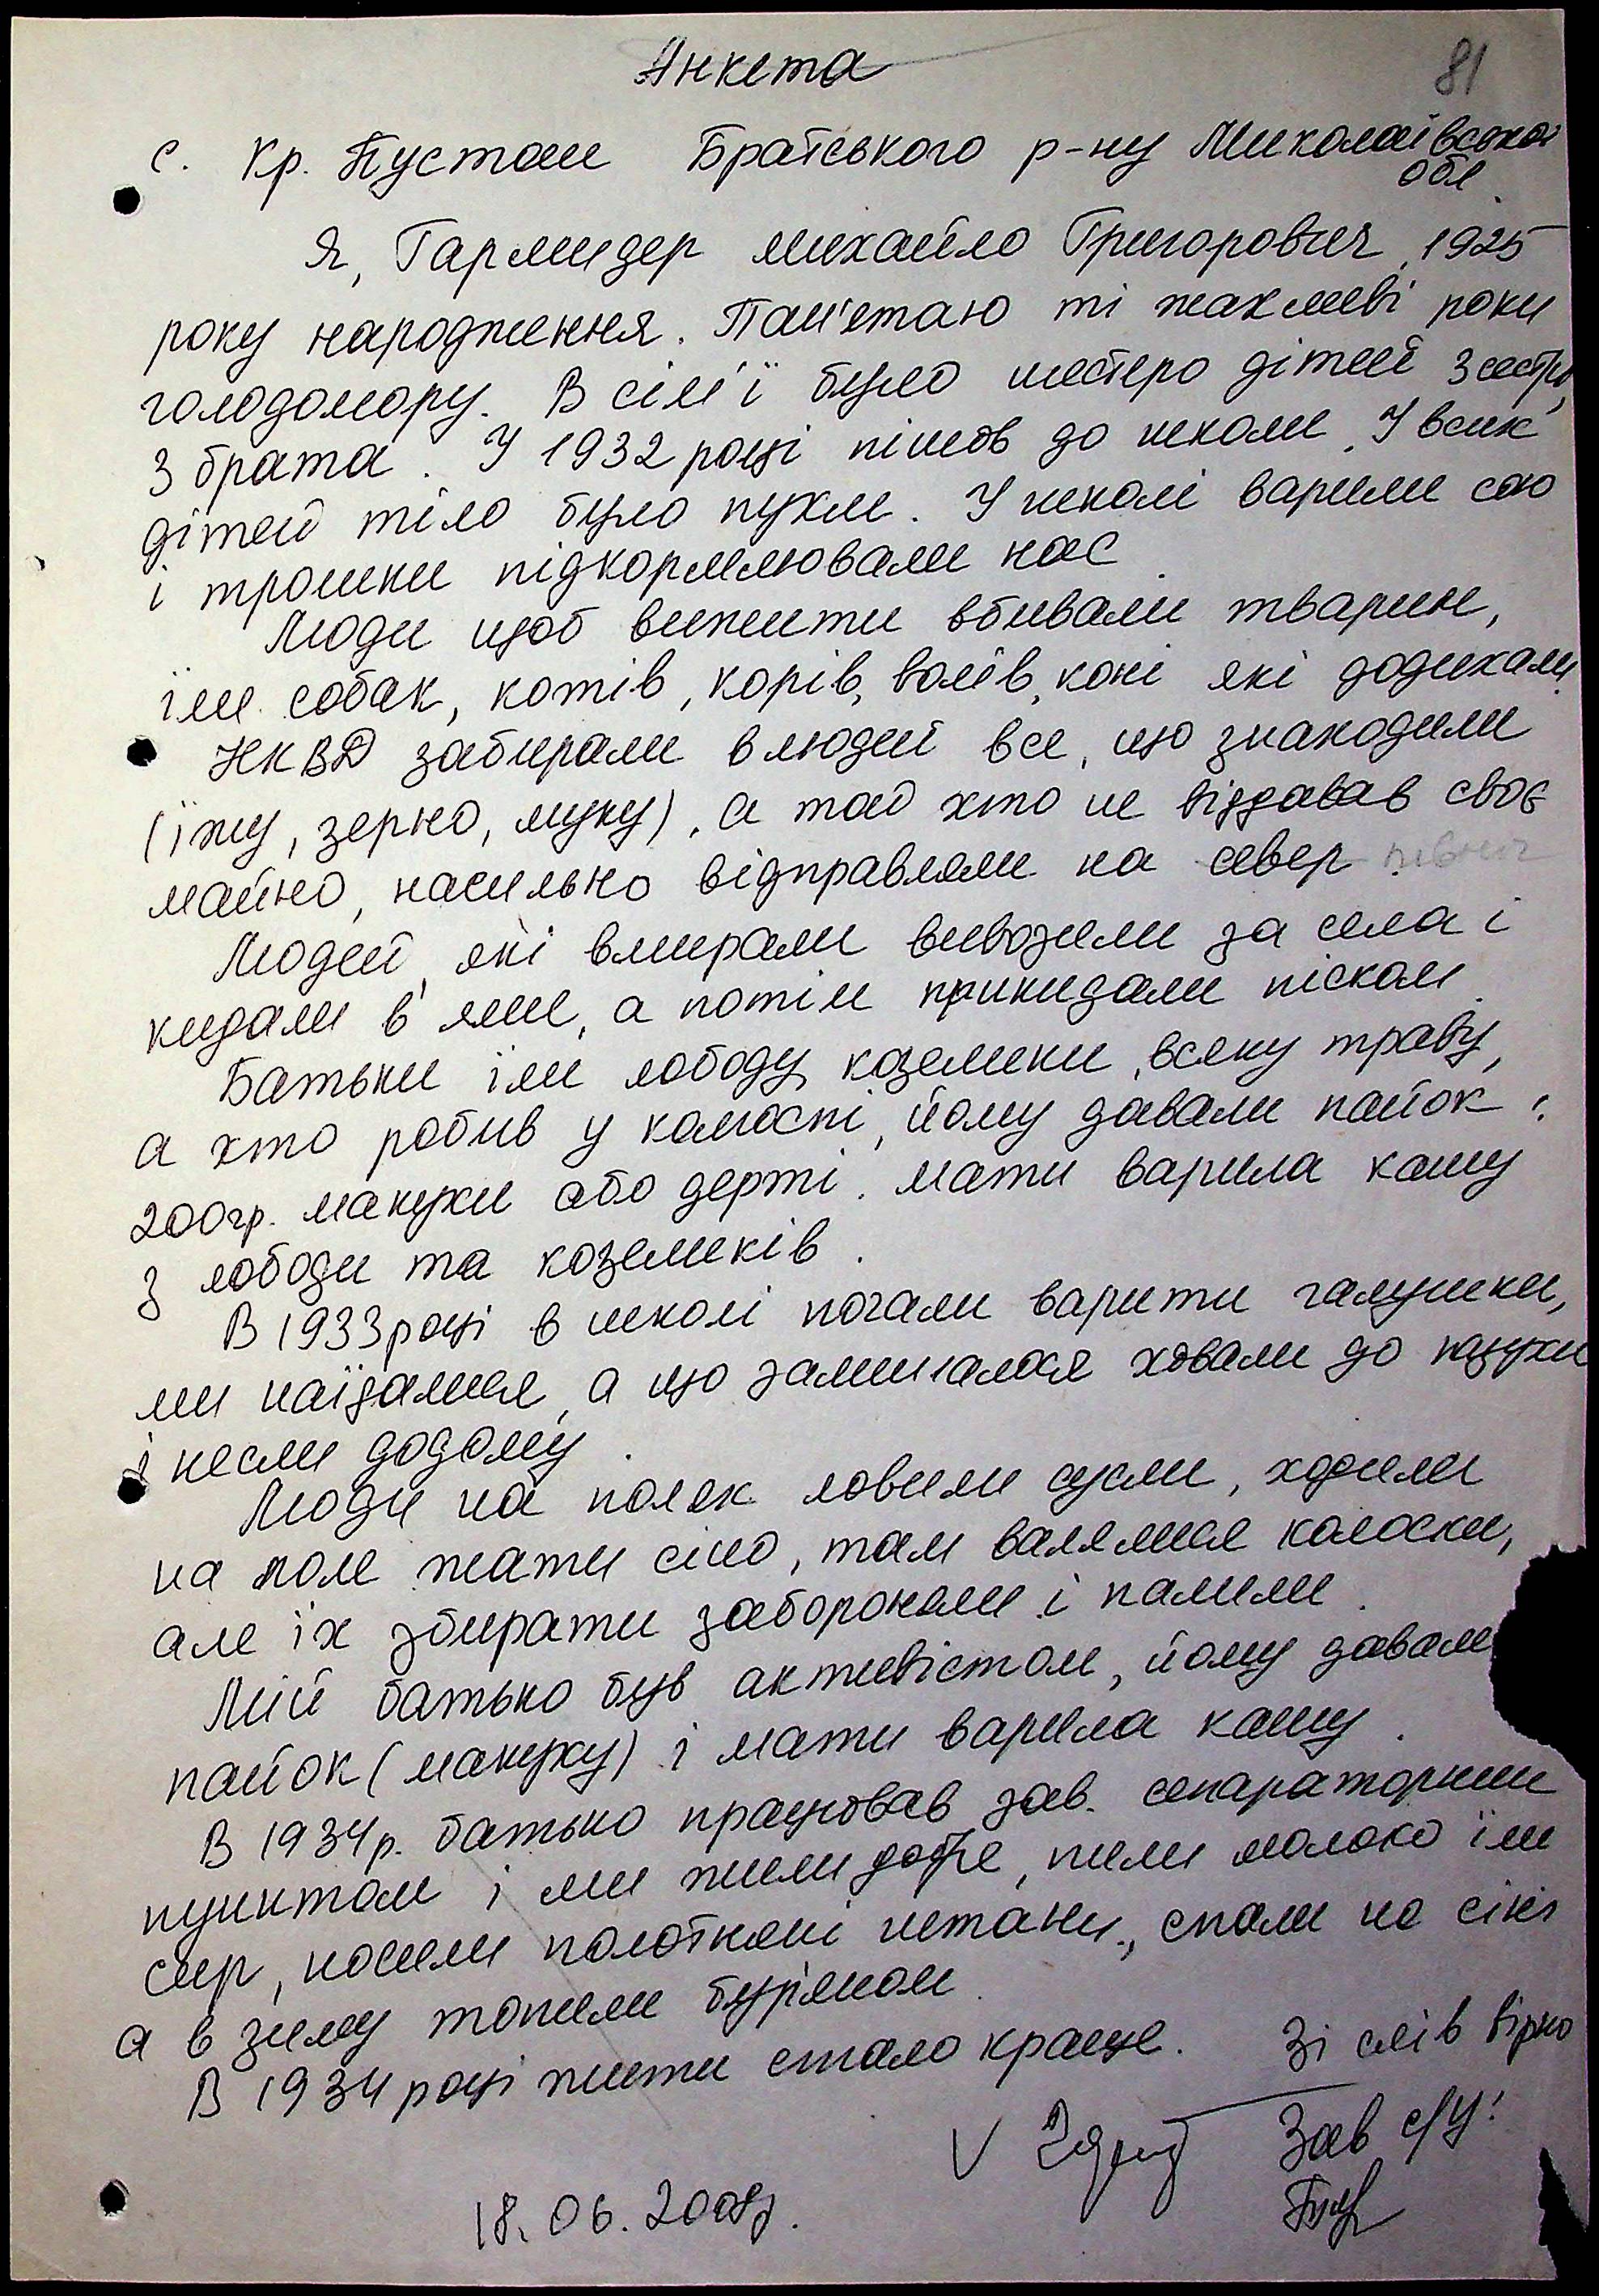 Анкета
81
с. Кр. Пустош Братського р-ну Миколаївської
обл
Я, Гармидер Михайло Григорович, 1925
року народження. Пам'ятаю ті жахливі роки
голодомору. В сім'ї було шестеро дітей 3 сестри,
3 брата. У 1932 році пішов до школи. У всіх
дітей тіло було пухле. У школі варили сою
і трошки підкормлювали нас.
Люди щоб вижити вбивали тварин,
їли собак, котів, корів, волів, коні які додихали.
НКВД забирали в людей все, що знаходили
(їжу, зерно, муку), а той хто не віддавав своє
майно, насильно відправляли на север північ
Людей, які вмирали вивозили за села і
кидали в ями, а потім прикидали піском.
Батьки їли лободу, козелики, всяку траву,
а хто робив у колгоспі, йому давали пайок:
200гр. макухи або дерті. Мати варила кашу
з лободи та козеликів.
В 1933 році в школі почали варити галушки,
ми наїдалися, а що залишалося ховали до пазухи
і несли додому.
Люди на полях ловили сусли, ходили
на поле жати сіно, там валялися колоски,
але їх збирати забороняли і палили.
Мій батько був активістом, йому давали
пайок (макуху) і мати варила кашу.
В 1934р. батько працював зав. сепараторним
пунктом і ми жили добре, пили молоко їли
сир, носили полотняні штани, спали на сіні
а в зиму топили бур'яном.
В 1934 році жити стало краще. Зі слів вірно
V Зав с/у:
18.06.2008р.